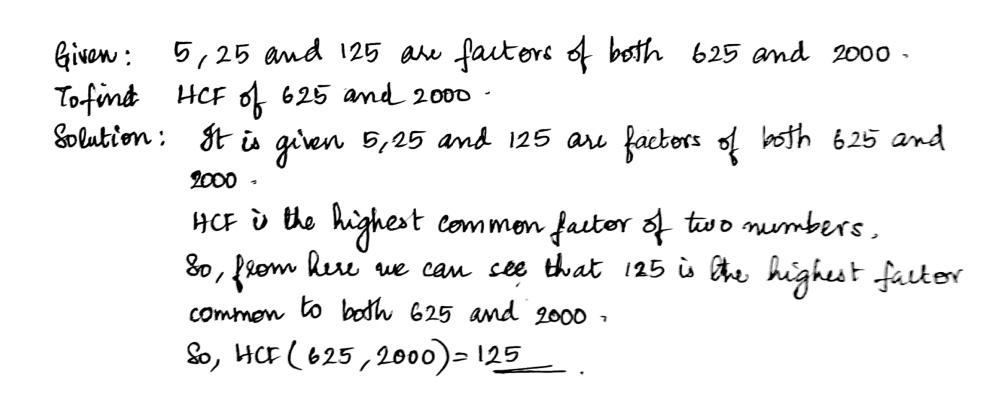 Given: 5, 25 and 125 are factors of both 625 and 2000.
To find HCF of 625 and 2000.
Solution: It is given 5, 25 and 125 are factors of both 625 and
2000.
HCF is the highest common factor of two numbers.
So, from here we can see that 125 is the highest factor
common to both 625 and 2000.
So, HCF (625, 2000) = 125.